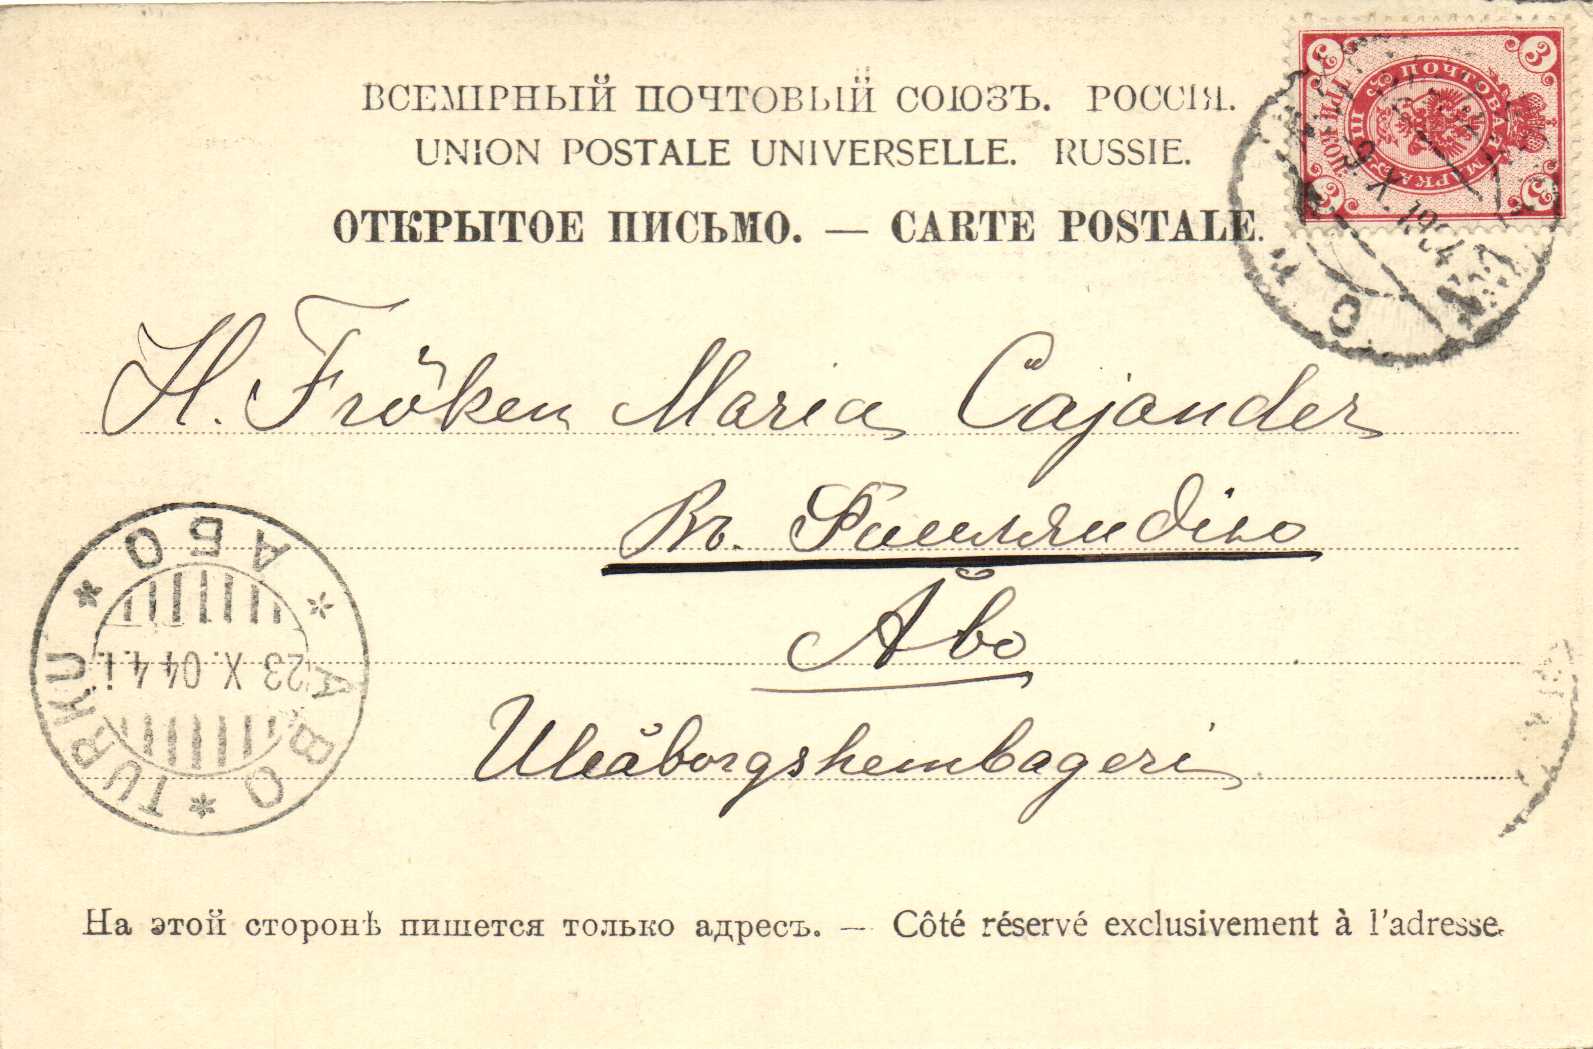 ВСЕМІРНЫЙ ПОЧТОВЫЙ СОЮЗЪ. РОССІЯ.
UNION POSTALE UNIVERSELLE. RUSSIE.
ОТКРЫТОЕ ПИСЬМО. — CARTE POSTALE.
3 3 3 3
ПОЧТОВАЯ МАРКА
9 X. 1904
С. П.
H. Fröken Maria Cajander
Въ Финляндію
Åbo
Uleåborgshembageri
АБО * ÅBO * TURKU *
23 X. 04 4 i.
На этой сторонѣ пишется только адресъ. — Côté réservé exclusivement à l'adresse.